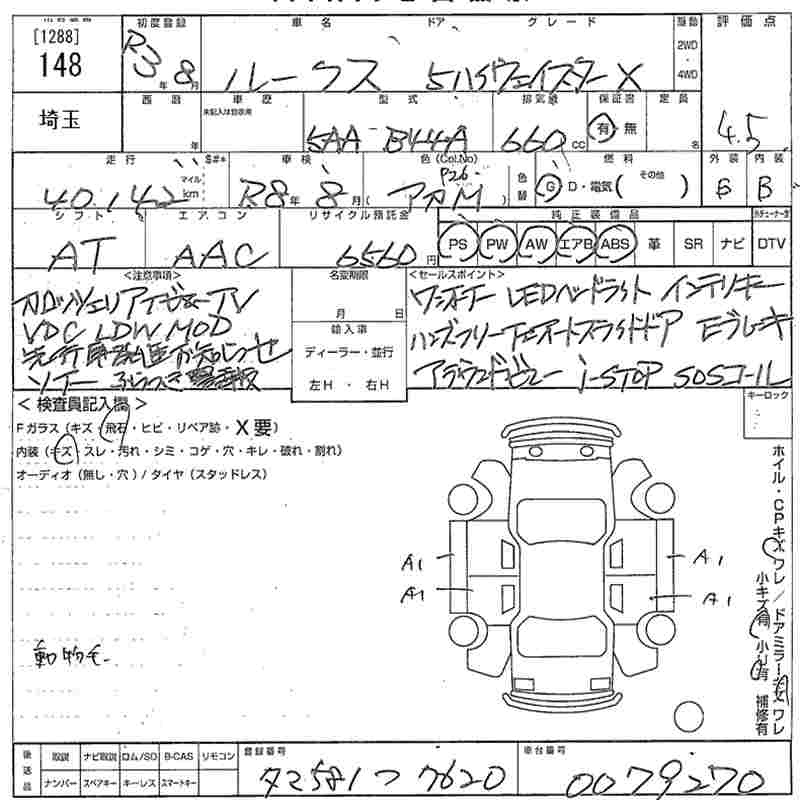 [1288]
148
埼玉
初度登録 車名 ドア グレード 駆動 評価点
R3年8月 ルークス 5 ハイウェイスターX 2WD 4WD
西暦 車歴 型式 排気量 保証書 定員
年 未記入は自家用 5AA B44A 660cc 有・無 名 4.5
走行 S#* 車検 色(Col,No) 燃料 外装 内装
40,142 マイル km R8年8月 P26 アカM 色替 G D・電気( その他 ) B B
シフト エアコン リサイクル預託金 純正装備品
AT AAC 6560円 PS PW AW エアB ABS 革 SR ナビ DTV
<注意事項> 名変期限 <セールスポイント>
カロッツェリアナビ TV 月 日 ワンオーナー LEDヘッドライト インテリキー
VDC LDW MOD 輸入車 ハンズフリー 両オートスライドドア Eブレーキ
先行車発進お知らせ ディーラー・並行
ソナー 左H・右H アラウンドビュー i-STOP SOSコール
<検査員記入欄> キーロック
Fガラス(キズ・飛石・ヒビ・リペア跡・X要)
内装(キズ・スレ・汚れ・シミ・コゲ・穴・キレ・破れ・割れ)
オーディオ(無し・穴)/タイヤ(スタッドレス)
ホイル・CPキズ ワレ/ドアミラーキズ ワレ
小キズ有 小U有 補修有
A1 A1
A1 A1
動物毛
後送品 取説 ナビ取説 ロム/SD B-CAS リモコン 登録番号 車台番号
ナンバー スペアキー キーレス スマートキー タマ581つ7620 0079270